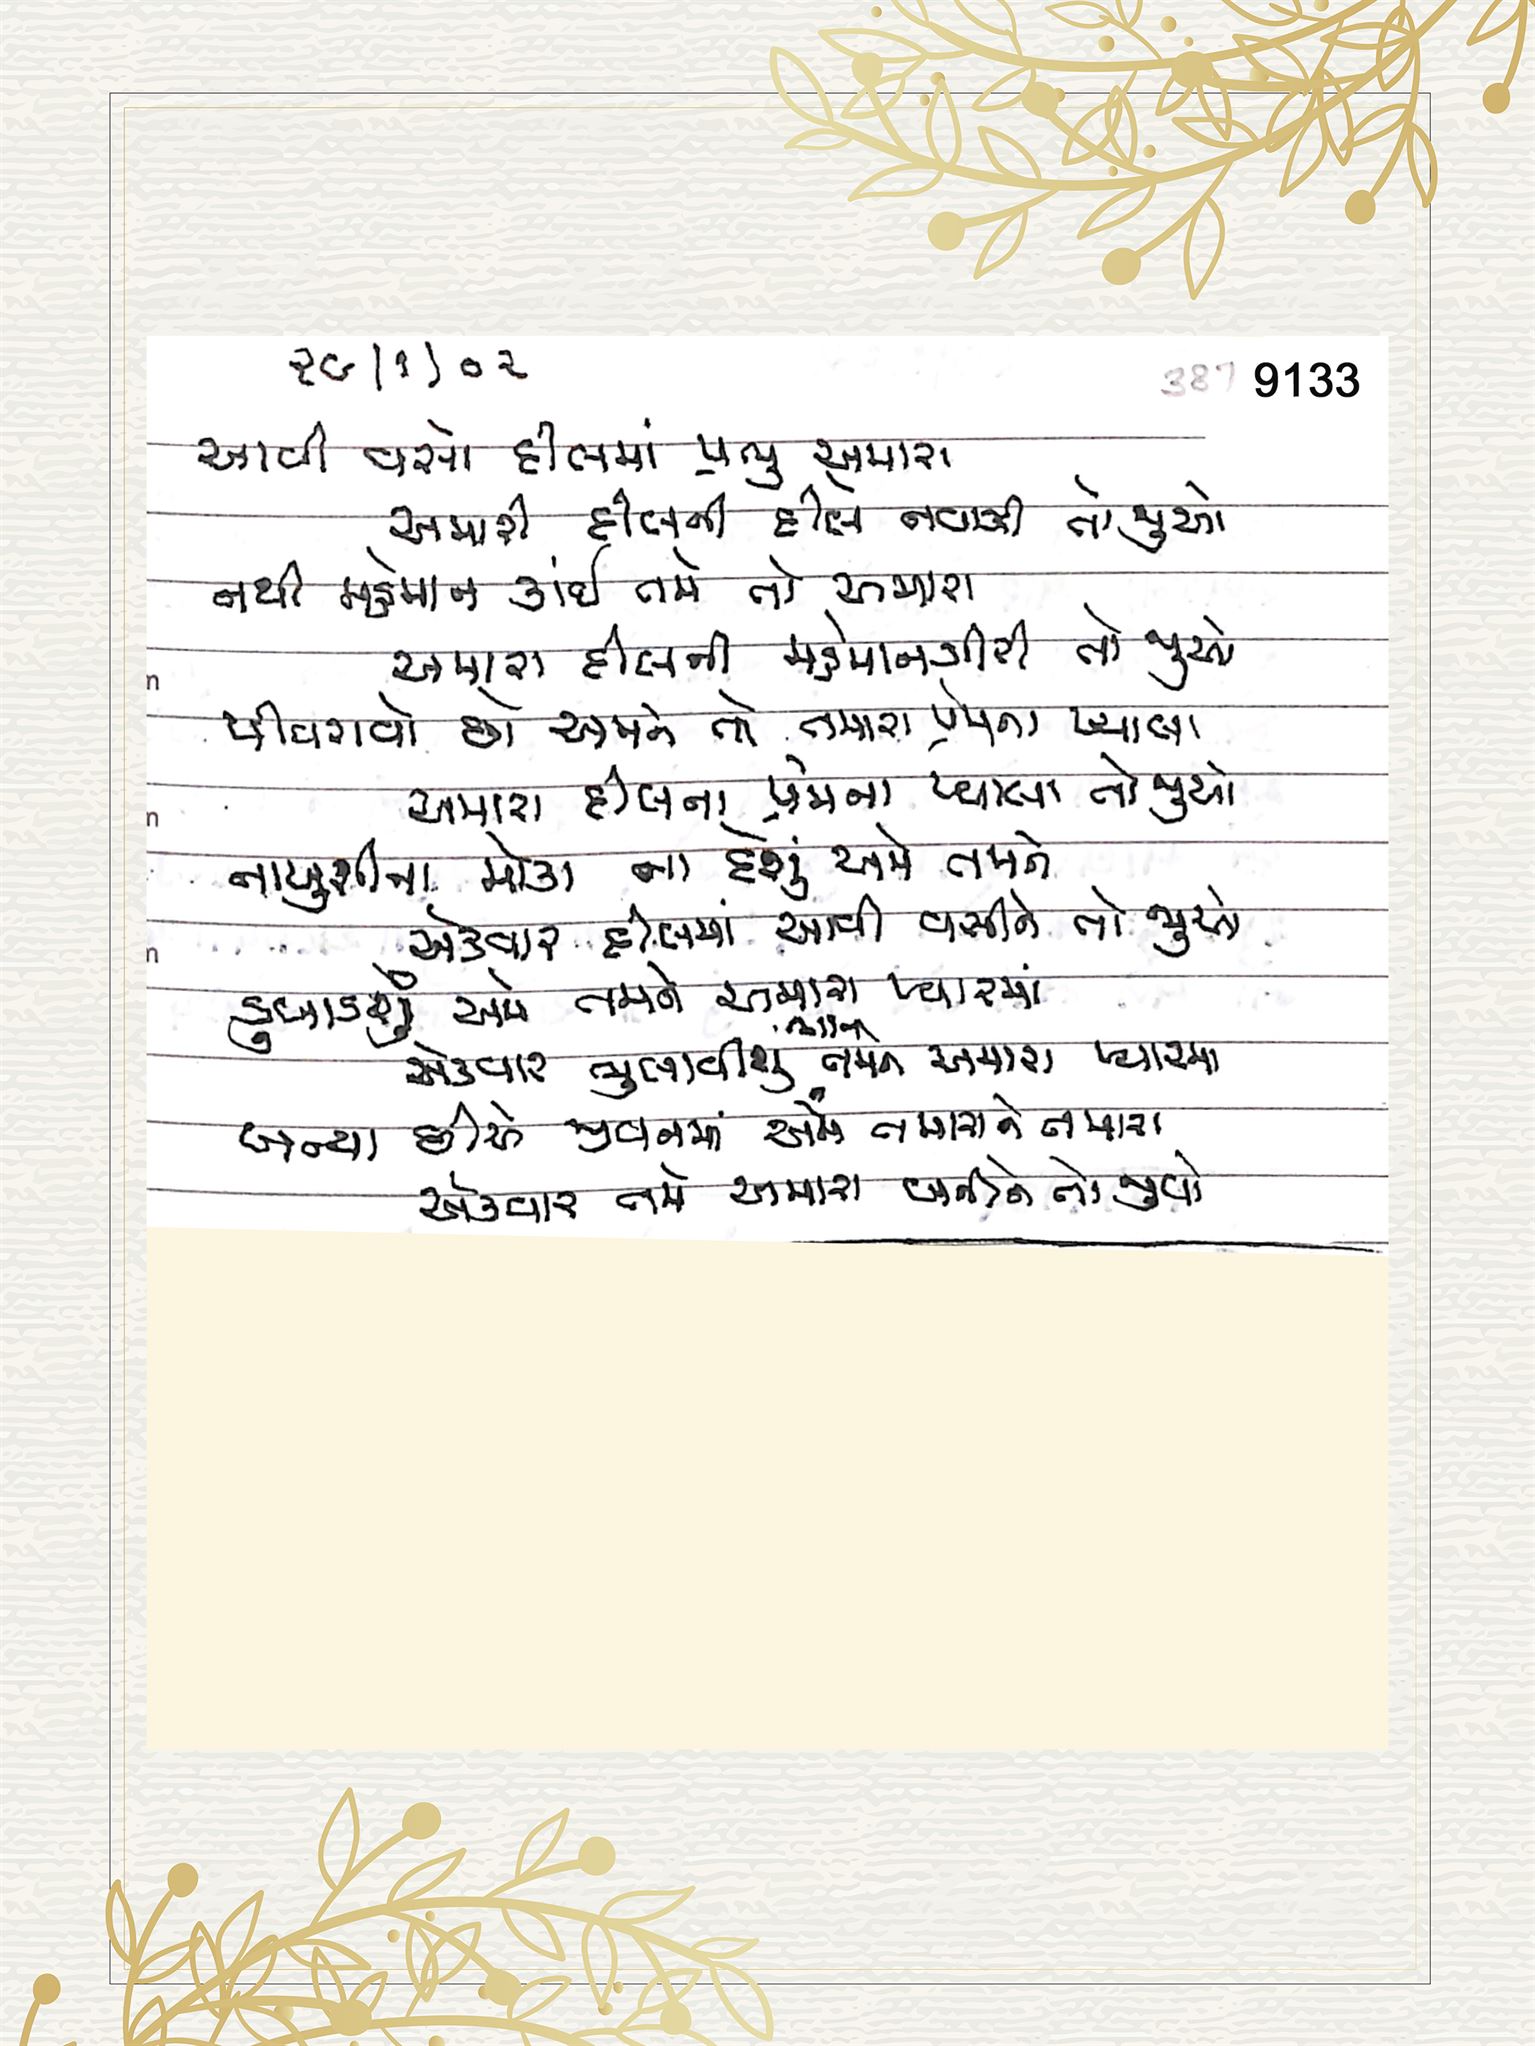 ૨૯|૧|૦૨
387 9133
આવી વસો દીલમાં પ્રભુ અમારા
અમારી દીલની દીલે નવાજી તો જુઓ
નથી મહેમાન કાંઈ તમે તો અમારા
અમારા દીલની મહેમાનગીરી તો જુઓ
પીવરાવો છો અમને તો તમારા પ્રેમના પ્યાલા
અમારા દીલના પ્રેમના પ્યાલા તો જુઓ
નાખુશીના મોકા ના દેશું અમે તમને
એકવાર દીલમાં આવી વસીને તો જુઓ
ડુબાડશું અમે તમને અમારા પ્યારમાં
ભાન
એકવાર ભુલાવીશુ તમને અમારા પ્યારમા
બન્યા છીએ જીવનમાં અમે તમારાને તમારા
એકવાર તમે અમારા બનીને તો જુવો